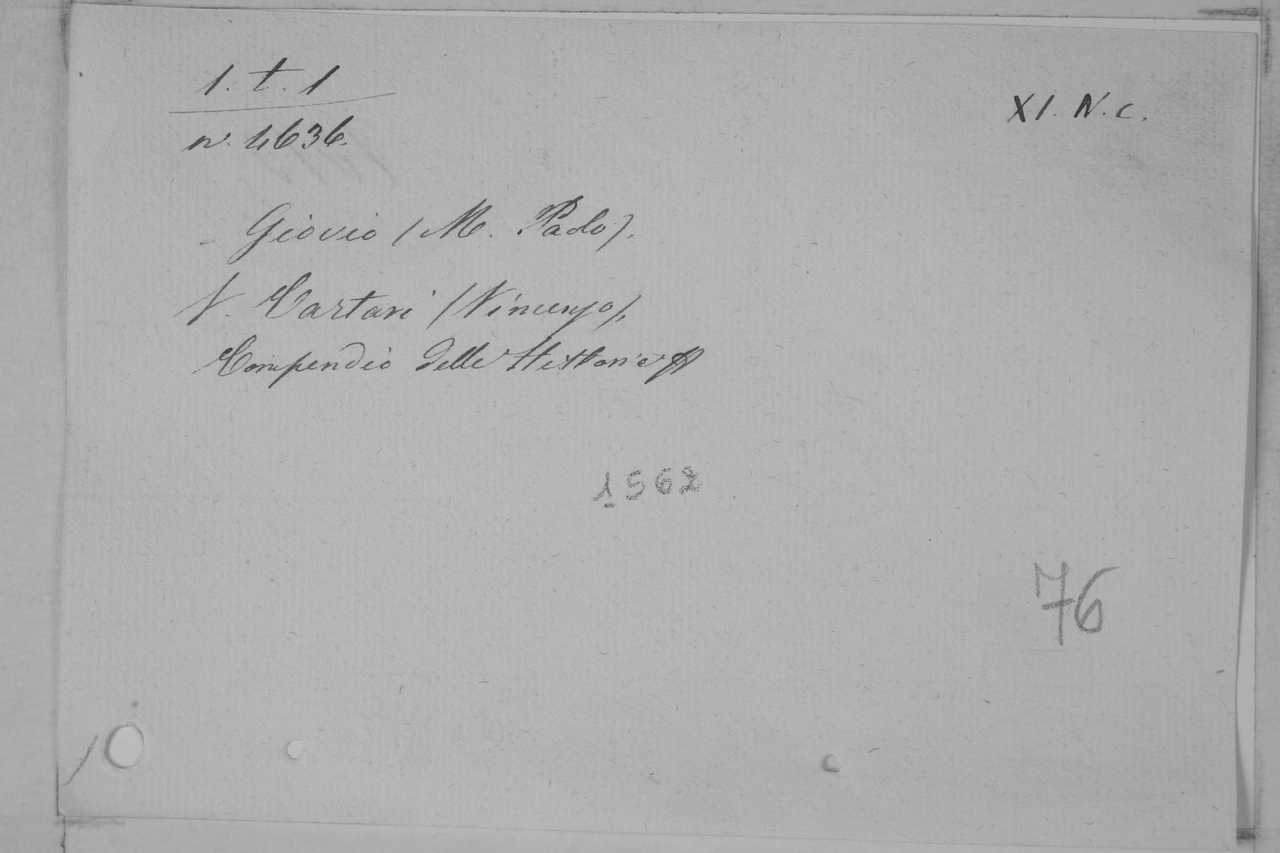 1. t. 1
XI. N. c.
n. 4636.
- Giovio (M. Paolo).
V. Cartari (Vincenzo),
Compendio delle Historie
1562
76